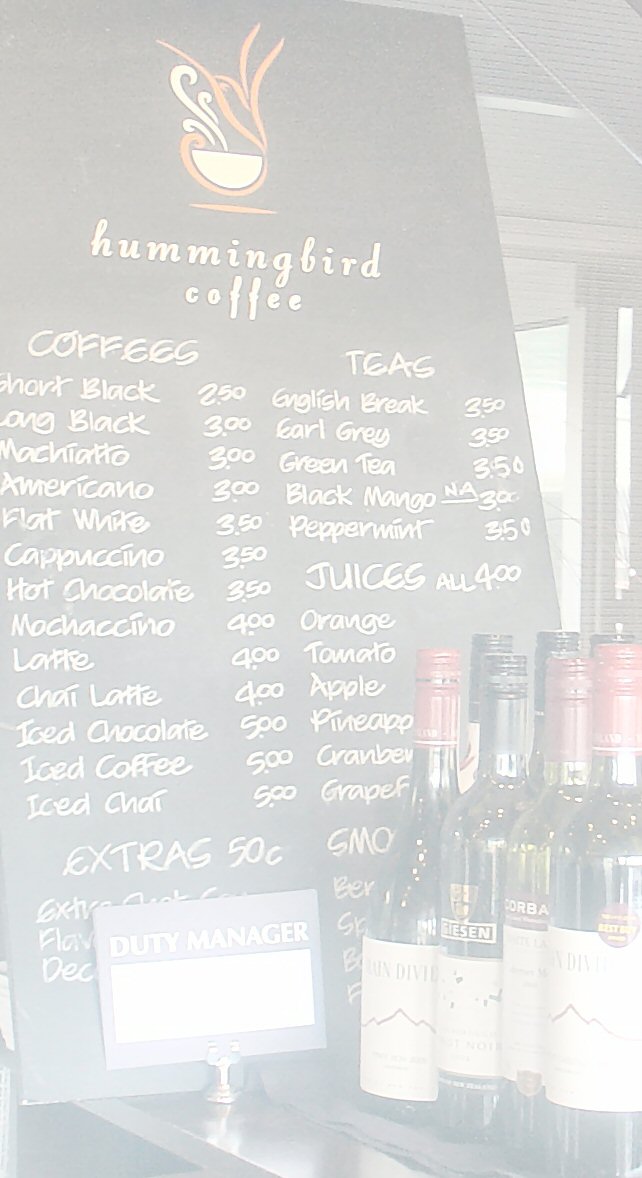 hummingbird
coffee
COFFEES
Short Black 2.50
Long Black 3.00
Machiatto 3.00
Americano 3.00
Flat White 3.50
Cappuccino 3.50
Hot Chocolate 3.50
Mochaccino 4.00
Latte 4.00
Chai Latte 4.00
Iced Chocolate 5.00
Iced Coffee 5.00
Iced Chai 5.00
EXTRAS 50c
Extra Shot
Flav
Dec
TEAS
English Break 3.50
Earl Grey 3.50
Green Tea 3.50
Black Mango NA 3.00
Peppermint 3.50
JUICES ALL 4.00
Orange
Tomato
Apple
Pineapp
Cranber
Grapef
SMO
Ber
Sp
DUTY MANAGER
GIESEN
CORBA
BEST BUY